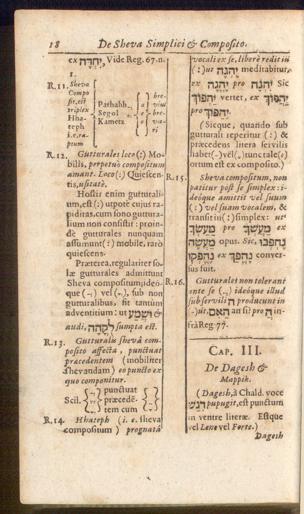 18 De Sheva Simplici & Composito.
ex יְחִדֶּה, Vide Reg. 67. n.
1.
R. 11. Sheva
Compo
situm, est
triplex
Hha-
teph
i. e. ra-
ptum
Pathahh
Segol
Kametz
bre-
viss
bre-
va-
ri
R. 12. Gutturales loco (:) Mo-
bilis, perpetuò compositum
amant. Loco (:) Quiescen-
tis, usitatè.
Hostis enim gutturali-
um, est (:) utpotè cujus ra-
piditas. cum sono guttura-
lium non consistit: proin-
dè gutturales nunquam
assumunt (:) mobile, rarò
quiescens.
Præterea, regulariter so-
læ gutturales admittunt
Sheva compositum, ideò-
que vel sub non
gutturalibus, sit tantùm
adventitium: ut וּשְׁמַע &
audi, לֻקֳחָה sumpta est.
R. 13. Gutturalis shevâ com-
posito affecta, punctuat
præcedentem (mobiliter
shevandam) eo puncto ex
quo componitur.
Scil. punctuat
præcedē-
tem cum
R. 14. Hhateph (i. e. sheva
compositum) prognatū
vocali ex se, liberè redit in
(:) ut יֶהְגֶּה meditabitur,
ex יֶהֱגֶה pro יֶהְגֶּה Sic
יַהְפּוֹךְ vertet, ex יַהֲפוֹךְ
pro יַהְפּוֹךְ.
(Sicque, quando sub
gutturali reperitur (:) &
præcedens litera servilis
habet vel tunc tale (:)
ortum est ex composito.)
R. 15. Sheva compositum, non
patitur post se simplex: i-
deóque amittit vel suum
(:) vel suam vocalem, &
transit in (:) simplex: ut
מַעֲשְׂךָ pro מַעַשְׂךָ ex
מַעֲשֶׂה opus. Sic נֶהְפְּכוּ
ex נֶהֶפְכוּ conver-
sus fuit.
R. 16. Gutturales non tolerant
ante se ideóque illud
sub servili ה producunt in
ut הַאִם an si? pro in-
frà Reg. 77.
CAP. III.
De Dagesh &
Mappik.
(Dagesh, à Chald. voce
דגש pupugit, est punctum
in ventre literæ. Estque
vel Lene vel Forte.)
Dagesh